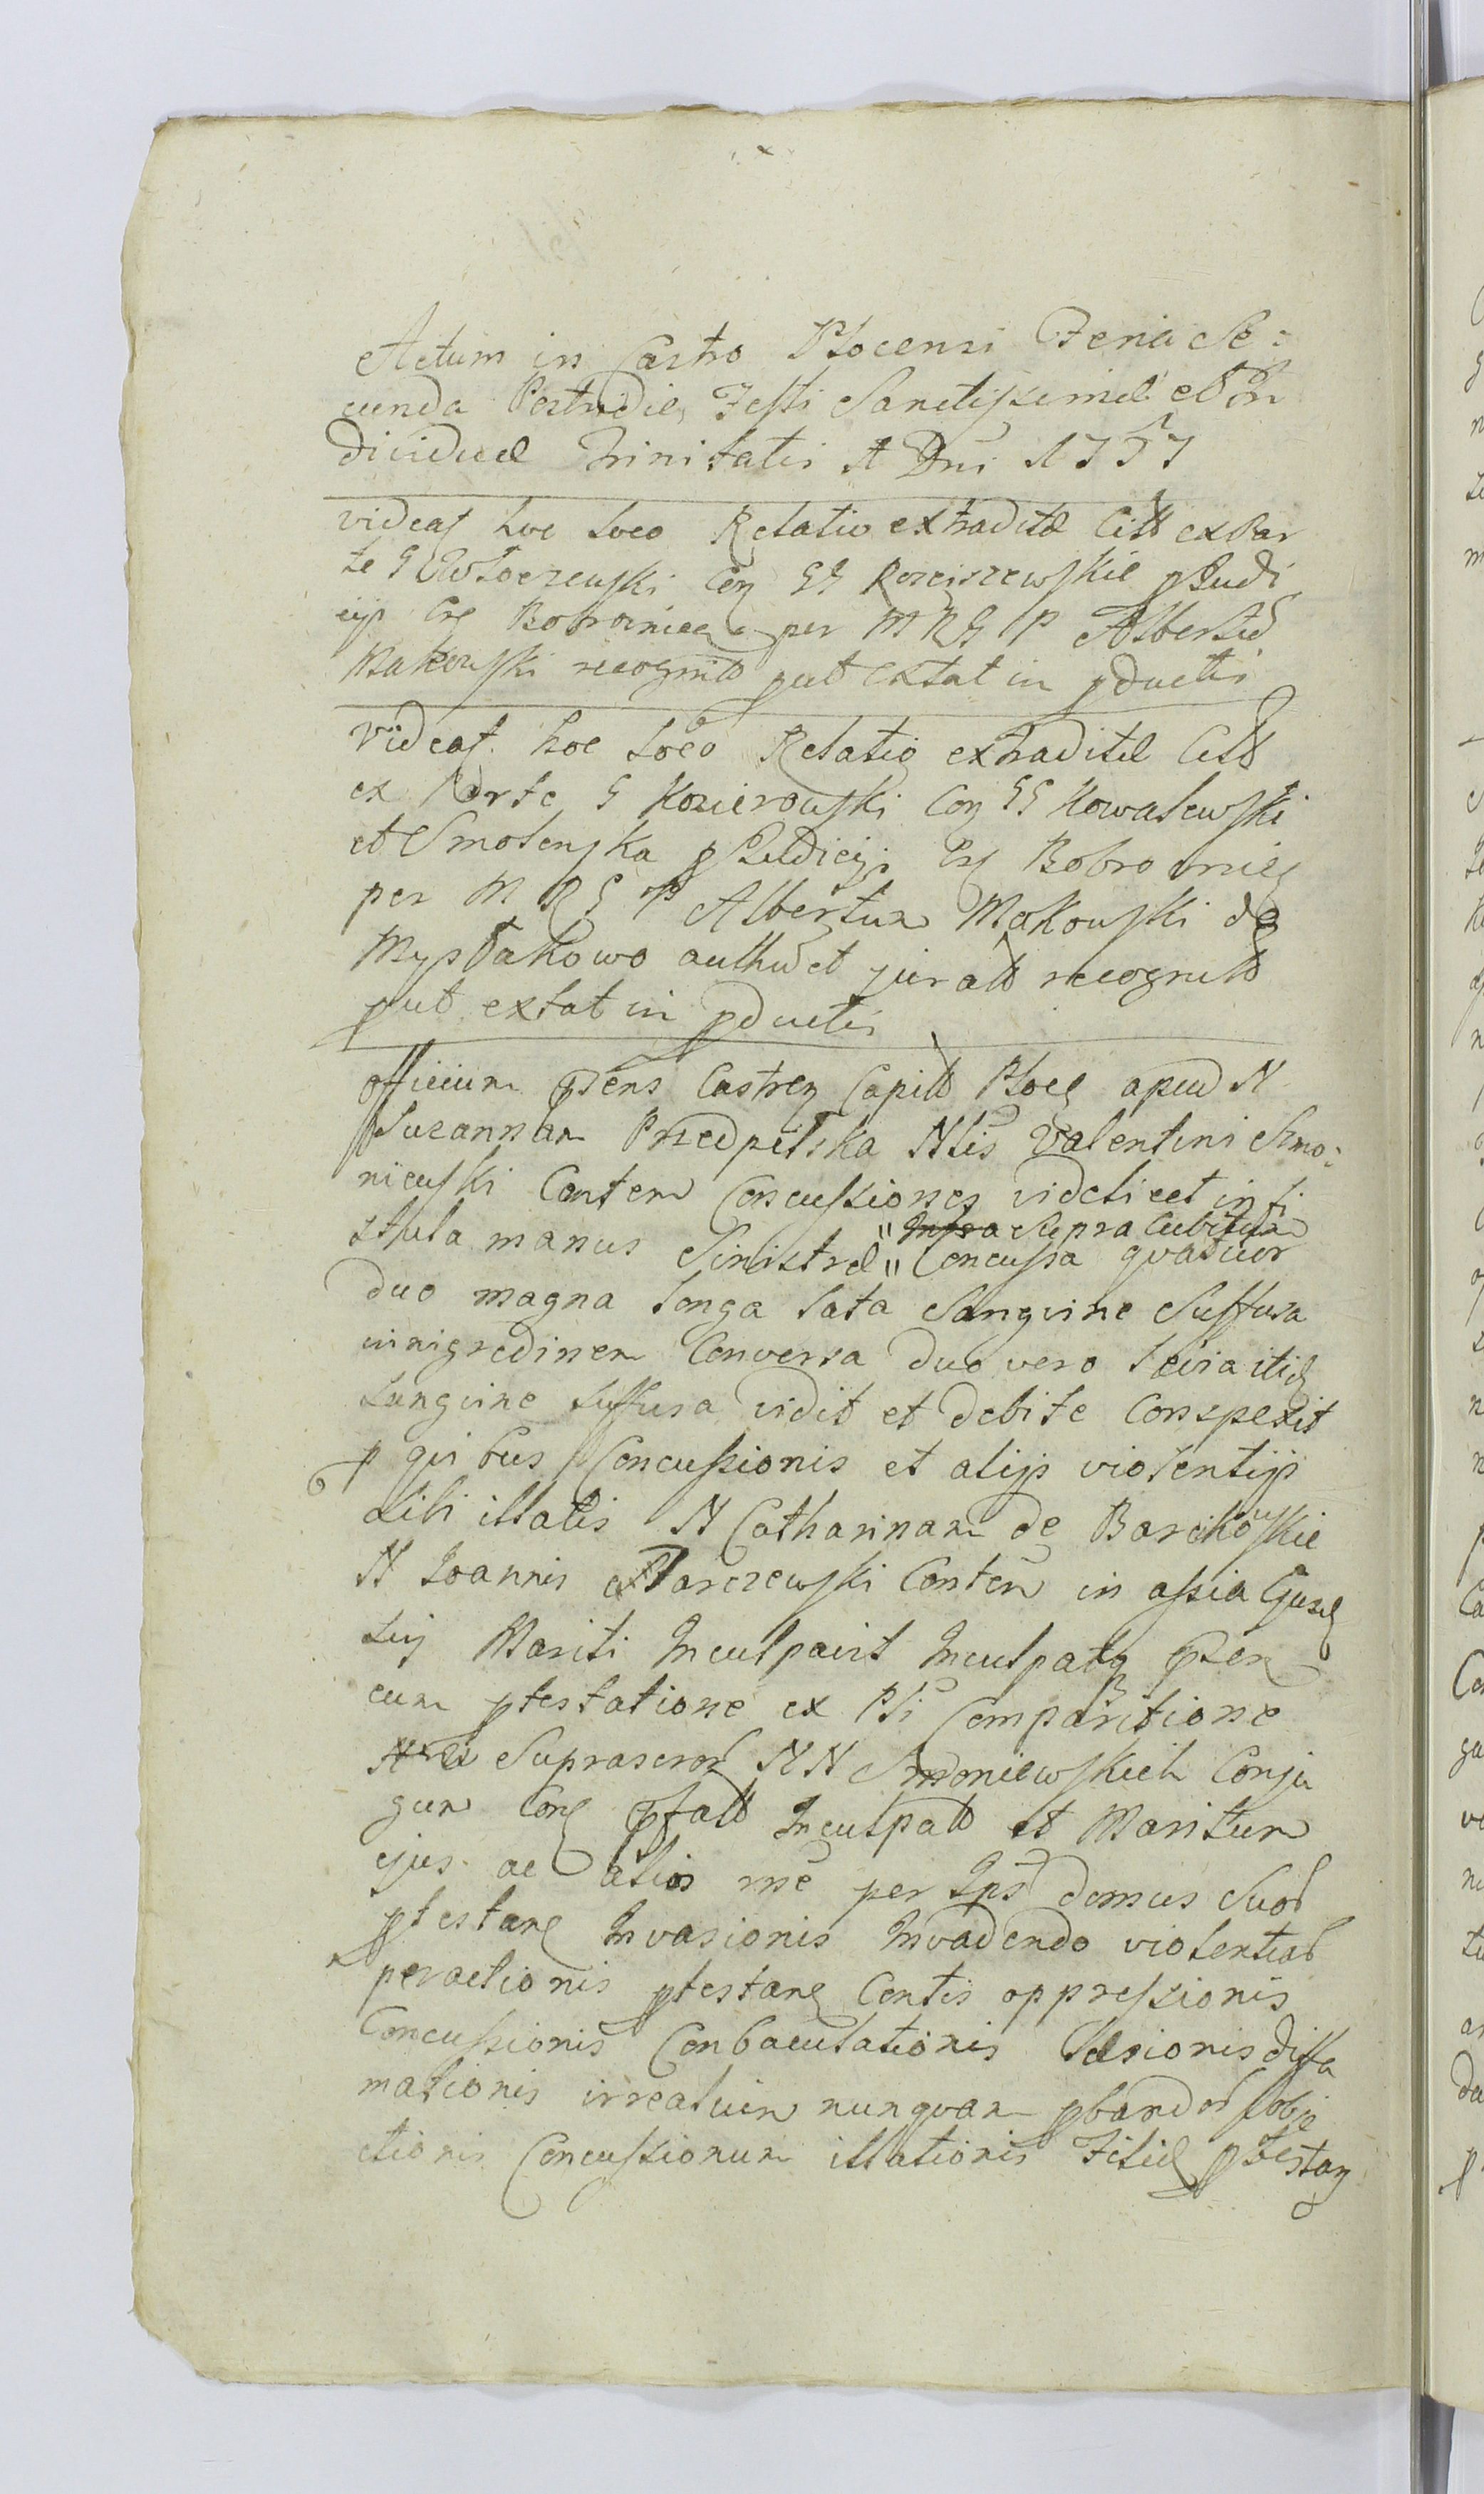 Actum in Castro Plocensi Feria Se=
cunda Postridie Festi Sanctissimae et In
dividuae Trinitatis A Dni 1757
videat hoc loco Relatio extraditae Citt ex Par
te G Con GG Rosciszewskie p Judi
cijs Cas Bobrownicen per M R G P Albertu
Makowski recognitt put extat in pductis
Videat hoc loco Relatio extraditae Citt
ex Parte G Kozierowski Con GG Kowalewski
et Smolenska p Judicijs Cas Bobrownicen
per M R G P Albertum Makowski de
Mystakowo authu et juratt recognitt
put extat in pductis
Officium pens Castren Capitt Ploc apud N
Suzannam Przedpelska Nlis Valentini Smo=
niewski Contem Concussiones videlicet in fi
stula manus Sinistrae " Supra Cubitum
" Concussa quatuor
duo magna longa lata Sanguine Suffusa
in nigredinem Conversa duo vero levia itid
Sanguine suffusa vidit et debite Conspexit
p quibus Concussionis et alijs violentijs
sibi illatis N Catharinam de Barcikowskie
N Joannis Marczewski Contem in assia
sui Mariti Inculpavit Inculpatq pten
cum ptestatione ex Pti Comparitione
Suprascror NN Smoniewskich Conju
gum Con pfatt Inculpatt et Maritum
ejus ac alios me per Ips domus Suor
ptestan Invasionis Invadendo violentiar
peractionis ptestan Contis oppressionis
Concussionis Conbaculationis laesionis diffa
mationis irreatum nunquam pbandor obje
ctionis Concussionum illationis Filiae ptestan